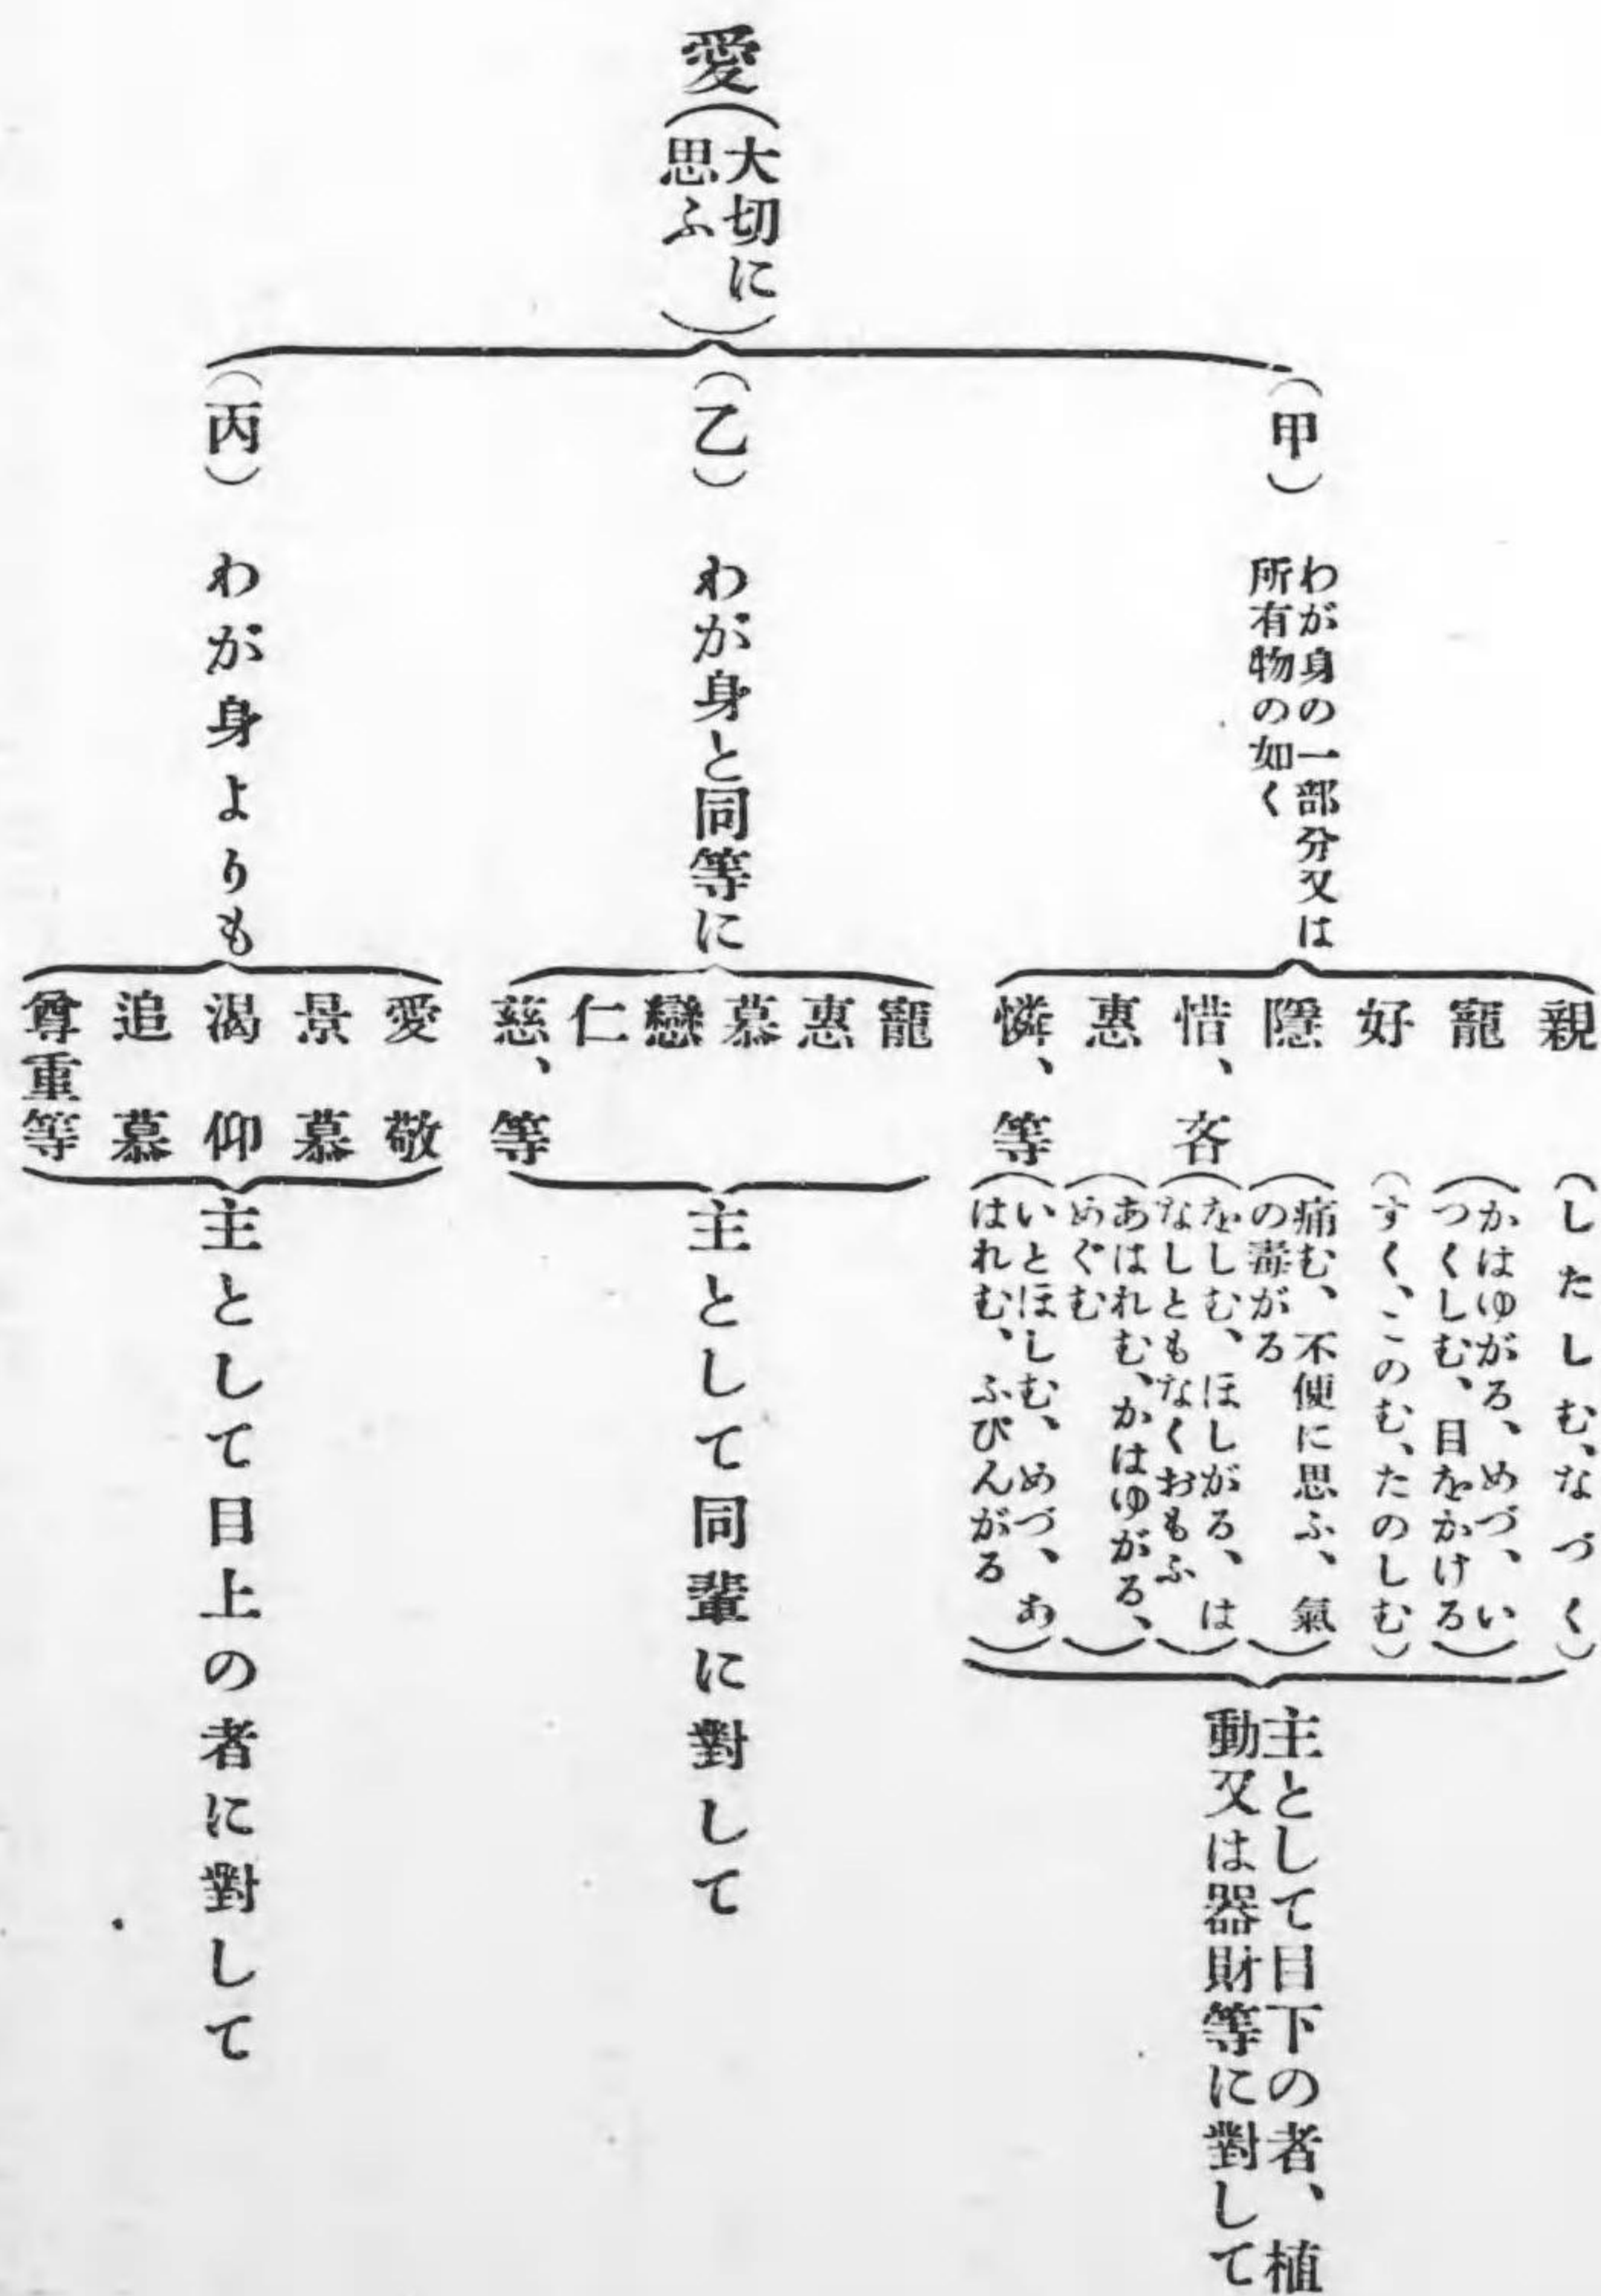 愛(大切に
思ふ)
(甲)
わが身の一部分又は
所有物の如く
親(したしむ、なづく)
寵(かはゆがる、めづ、い
つくしむ、目をかける)
好(すく、このむ、たのしむ)
隱(痛む、不便に思ふ、氣
の毒がる)
惜、吝(をしむ、ほしがる、は
なしともなくおもふ)
惠(あはれむ、かはゆがる、
めぐむ)
憐、等(いとほしむ、めづ、あ
はれむ、ふびんがる)
主として目下の者、植
動又は器財等に對して
(乙)
わが身と同等に
寵
惠
慕
戀
仁
慈、等
主として同輩に對して
(丙)
わが身よりも
愛敬
景慕
渴仰
追慕
尊重等
主として目上の者に對して